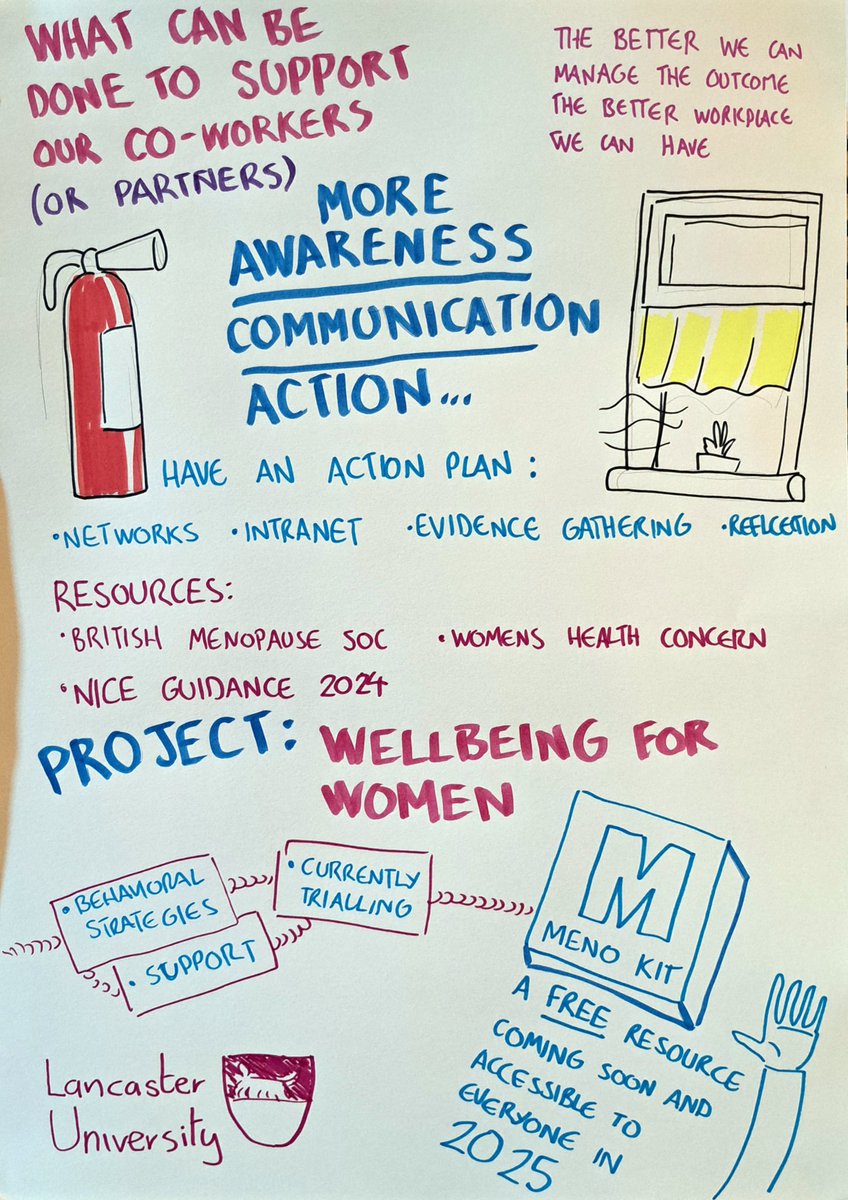 WHAT CAN BE
DONE TO SUPPORT
OUR CO-WORKERS
(OR PARTNERS)
THE BETTER WE CAN
MANAGE THE OUTCOME
THE BETTER WORKPLACE
WE CAN HAVE
MORE
AWARENESS
COMMUNICATION
ACTION...
HAVE AN ACTION PLAN:
•NETWORKS •INTRANET •EVIDENCE GATHERING •REFLCETION
RESOURCES:
•BRITISH MENOPAUSE SOC •WOMENS HEALTH CONCERN
•NICE GUIDANCE 2024
PROJECT: WELLBEING FOR
WOMEN
•BEHAVIORAL
STRATEGIES
•SUPPORT
•CURRENTLY
TRIALLING
M
MENO KIT
A FREE RESOURCE
COMING SOON AND
ACCESSIBLE TO
EVERYONE IN
2025
Lancaster
University